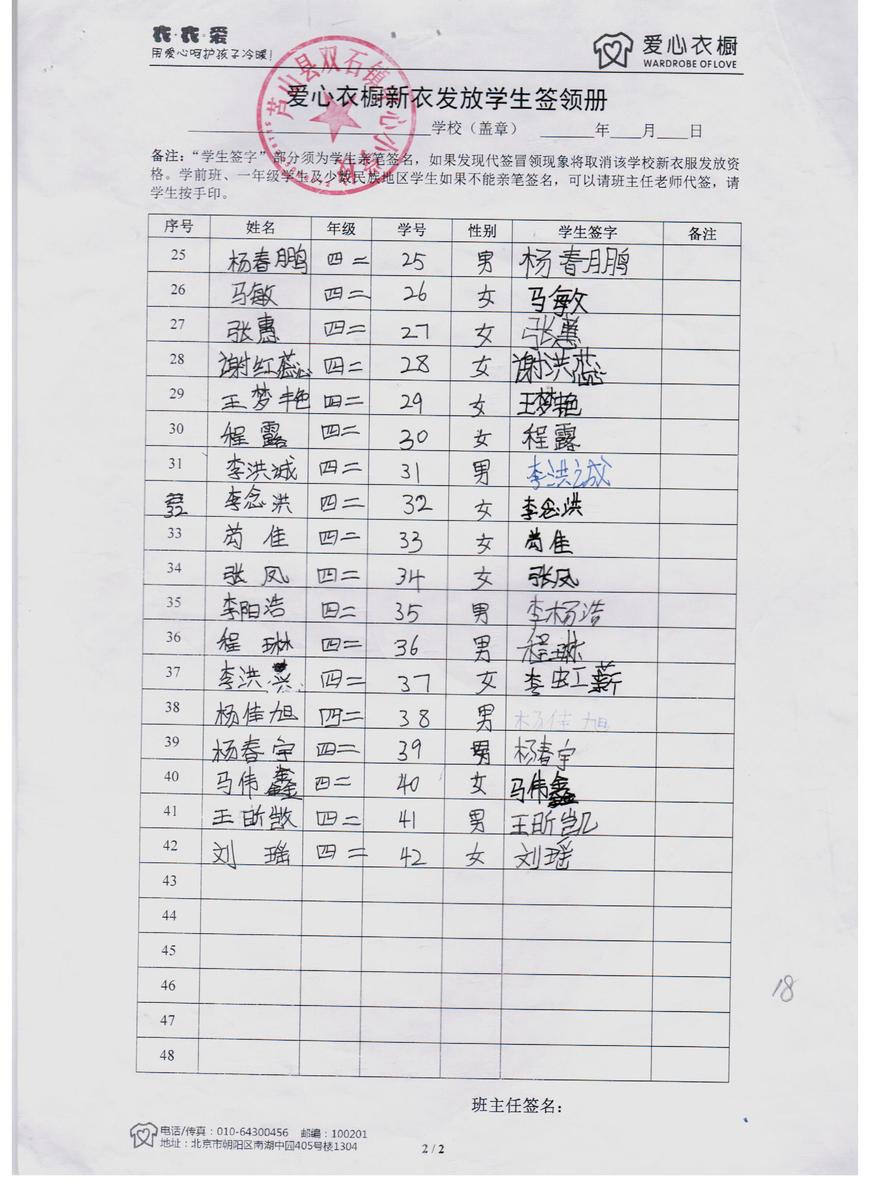 衣·衣·爱
用爱心呵护孩子冷暖!
爱心衣橱
WARDROBE OF LOVE
芦山县双石镇中心小学校
爱心衣橱新衣发放学生签领册
学校（盖章） 年 月 日
备注：“学生签字”部分须为学生亲笔签名，如果发现代签冒领现象将取消该学校新衣服发放资
格。学前班、一年级学生及少数民族地区学生如果不能亲笔签名，可以请班主任老师代签，请
学生按手印。
序号 姓名 年级 学号 性别 学生签字 备注
25 杨春鹏 四二 25 男 杨春鹏
26 马敏 四二 26 女 马敏
27 张惠 四二 27 女 张惠
28 谢红蕊 四二 28 女 谢洪蕊
29 王梦艳 四二 29 女 王梦艳
30 程露 四二 30 女 程露
31 李洪诚 四二 31 男 李洪诚
32 李念洪 四二 32 女 李念洪
33 苟佳 四二 33 女 苟佳
34 张凤 四二 34 女 张凤
35 李阳浩 四二 35 男 李杨浩
36 程琳 四二 36 男 程琳
37 李洪 四二 37 女 李虹薪
38 杨佳旭 四二 38 男 杨佳旭
39 杨春宇 四二 39 男 杨春宇
40 马伟鑫 四二 40 女 马伟鑫
41 王昕凯 四二 41 男 王昕凯
42 刘瑶 四二 42 女 刘瑶
43
44
45
46
47
48
18
班主任签名：
电话/传真：010-64300456 邮编：100201
地址：北京市朝阳区南湖中园405号楼1304
2 / 2